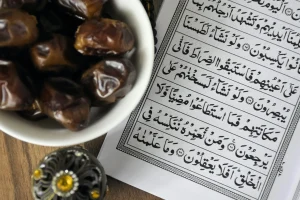 اَيْدِيْهِمْ وَتَشْهَدُ اَرْجُلُهُمْ
يَكْسِبُوْنَ ۝ وَلَوْ نَشَآءُ لَطَمَسْنَا
عَلٰٓى اَعْيُنِهِمْ فَاسْتَبَقُوا الصِّرَاطَ فَاَنّٰى
يُبْصِرُوْنَ ۝ وَلَوْ نَشَآءُ لَمَسَخْنٰهُمْ عَلٰى
مَكَانَتِهِمْ فَمَا اسْتَطَاعُوْا مُضِيًّا وَّلَا
يَرْجِعُوْنَ ۝ وَمَنْ نُّعَمِّرْهُ نُنَكِّسْهُ فِي
الْخَلْقِ اَفَلَا يَعْقِلُوْنَ ۝ وَمَا عَلَّمْنٰهُ